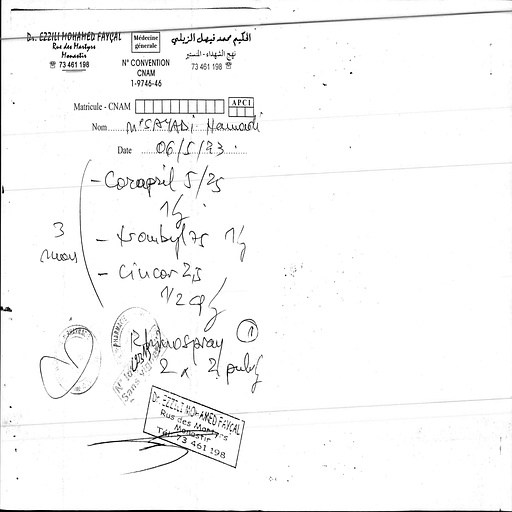 Dr. EZZILI MOHAMED FAYÇAL
Rue des Martyrs
Monastir
☎ 73 461 198
Médecine
générale
N° CONVENTION
CNAM
1-9746-46
الحكيم محمد فيصل الزيلي
نهج الشهداء - المنستير
73 461 198 ☎
Matricule - CNAM
APCI
Nom Mr SAYADI Hamadi
Date 06/5/23
- Corapril 5/25
1/j
- trombyl 75 1/j
- Cincor 2,5
1/2 cp/j
3
mois
Rhinospray 1
2 x 2 pulv/j
PHARMACIE
Dr EZZILI MOHAMED FAYÇAL
Rue des Martyrs
Monastir
Tél: 73 461 198